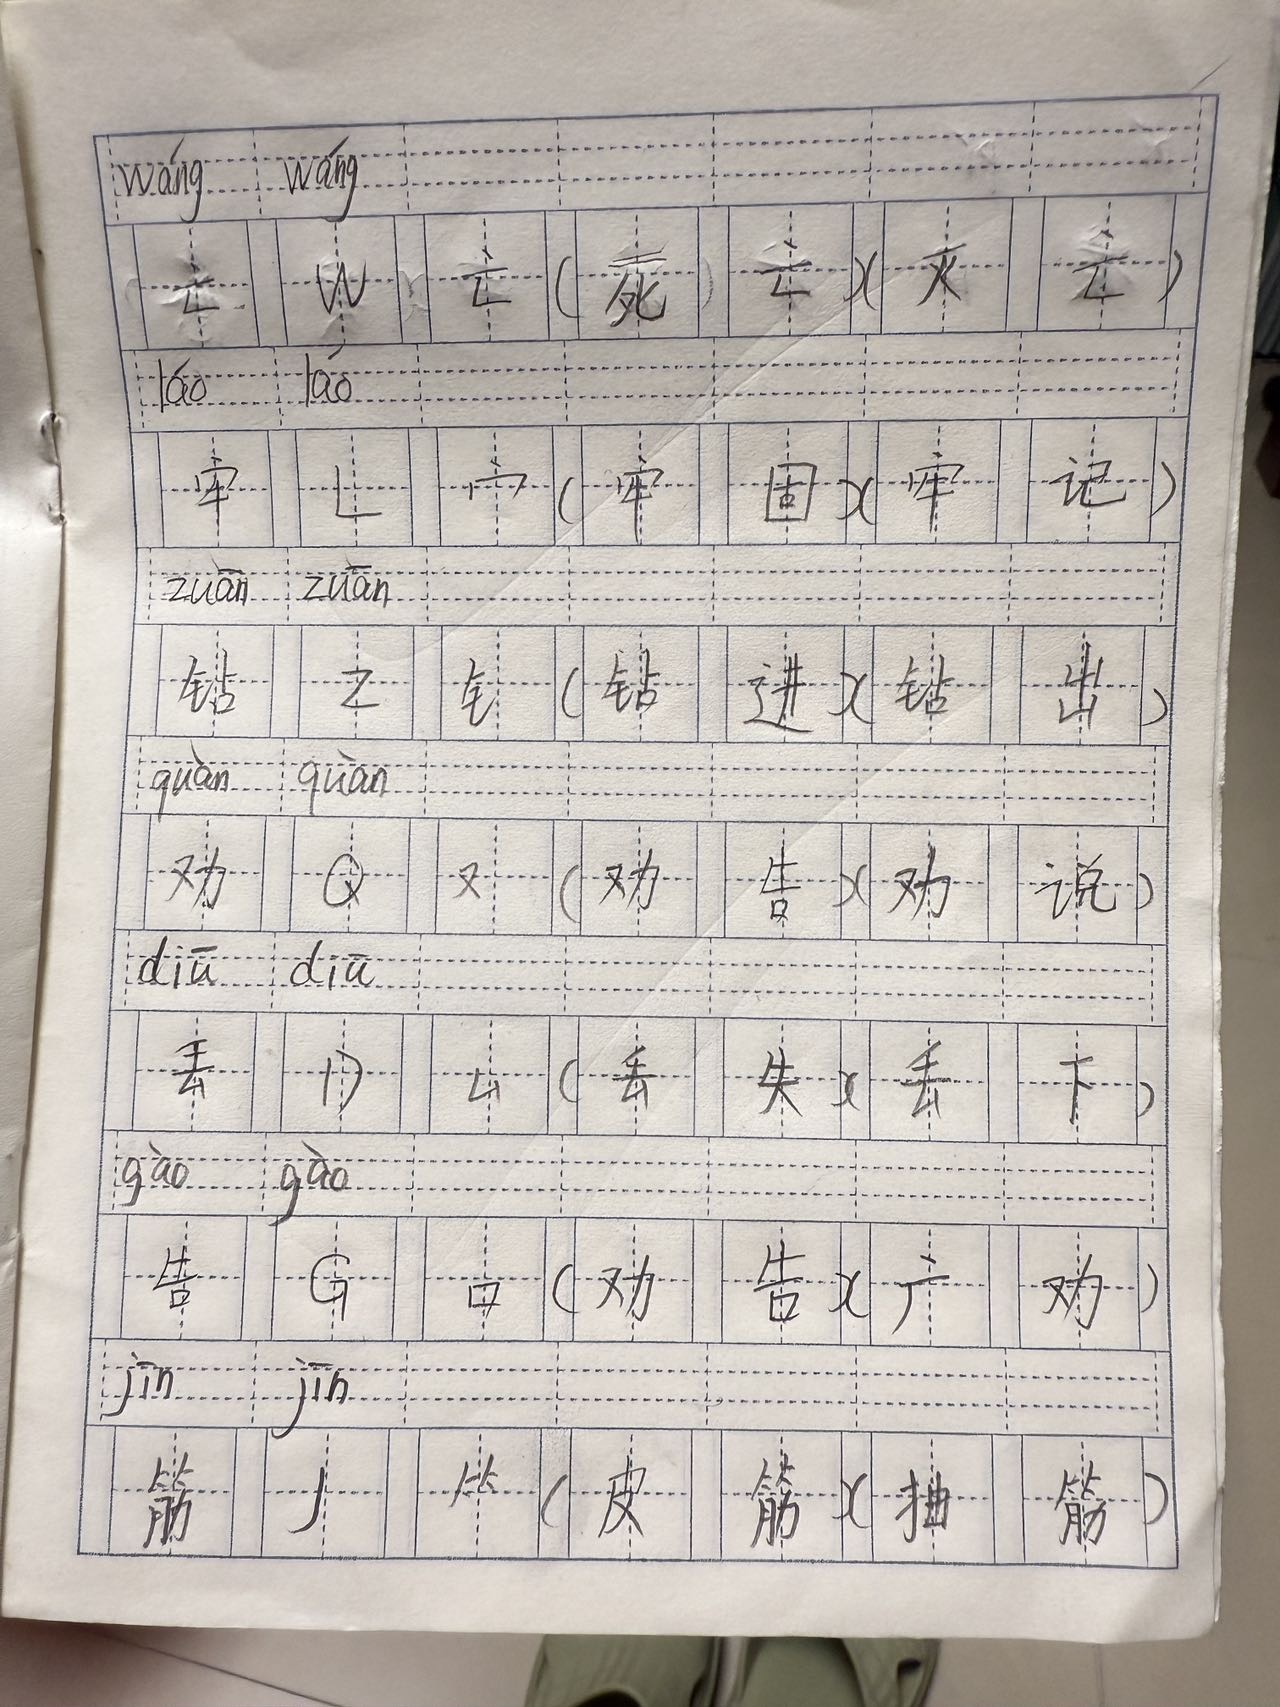 wáng wáng
亡 W 亡 (死 亡)(灭 亡)
láo láo
牢 L 宀 (牢 固)(牢 记)
zuān zuān
钻 Z 钅 (钻 进)(钻 出)
quàn quàn
劝 Q 又 (劝 告)(劝 说)
diū diū
丢 D 厶 (丢 失)(丢 下)
gào gào
告 G 口 (劝 告)(广 劝)
jīn jīn
筋 J ⺮ (皮 筋)(抽 筋)